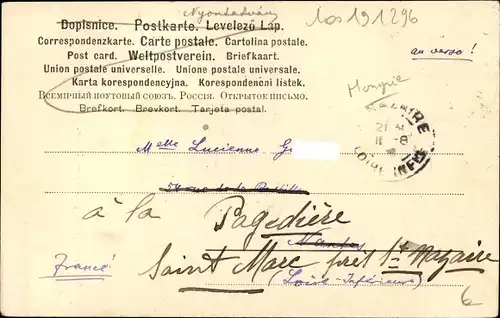 Nyomtatvány
los 191296
Dopisnice. Postkarte. Levelező Lap.
Correspondenzkarte. Carte postale. Cartolina postale.
Post card. Weltpostverein. Briefkaart.
Union postale universelle. Unione postale universale.
Karta korespondencyjna. Korespondenční lístek.
Всемирный почтовый союзъ. Россія. Открытое письмо.
Brefkort. Brevkort. Tarjeta postal.
au verso!
Hongrie
NAZAIRE
LOIRE INFRE
Melle Lucienne G
rue de la
à la Pagedière
Nantes
Saint Marc près St Nazaire
France!
(Loire-Inférieure)
6